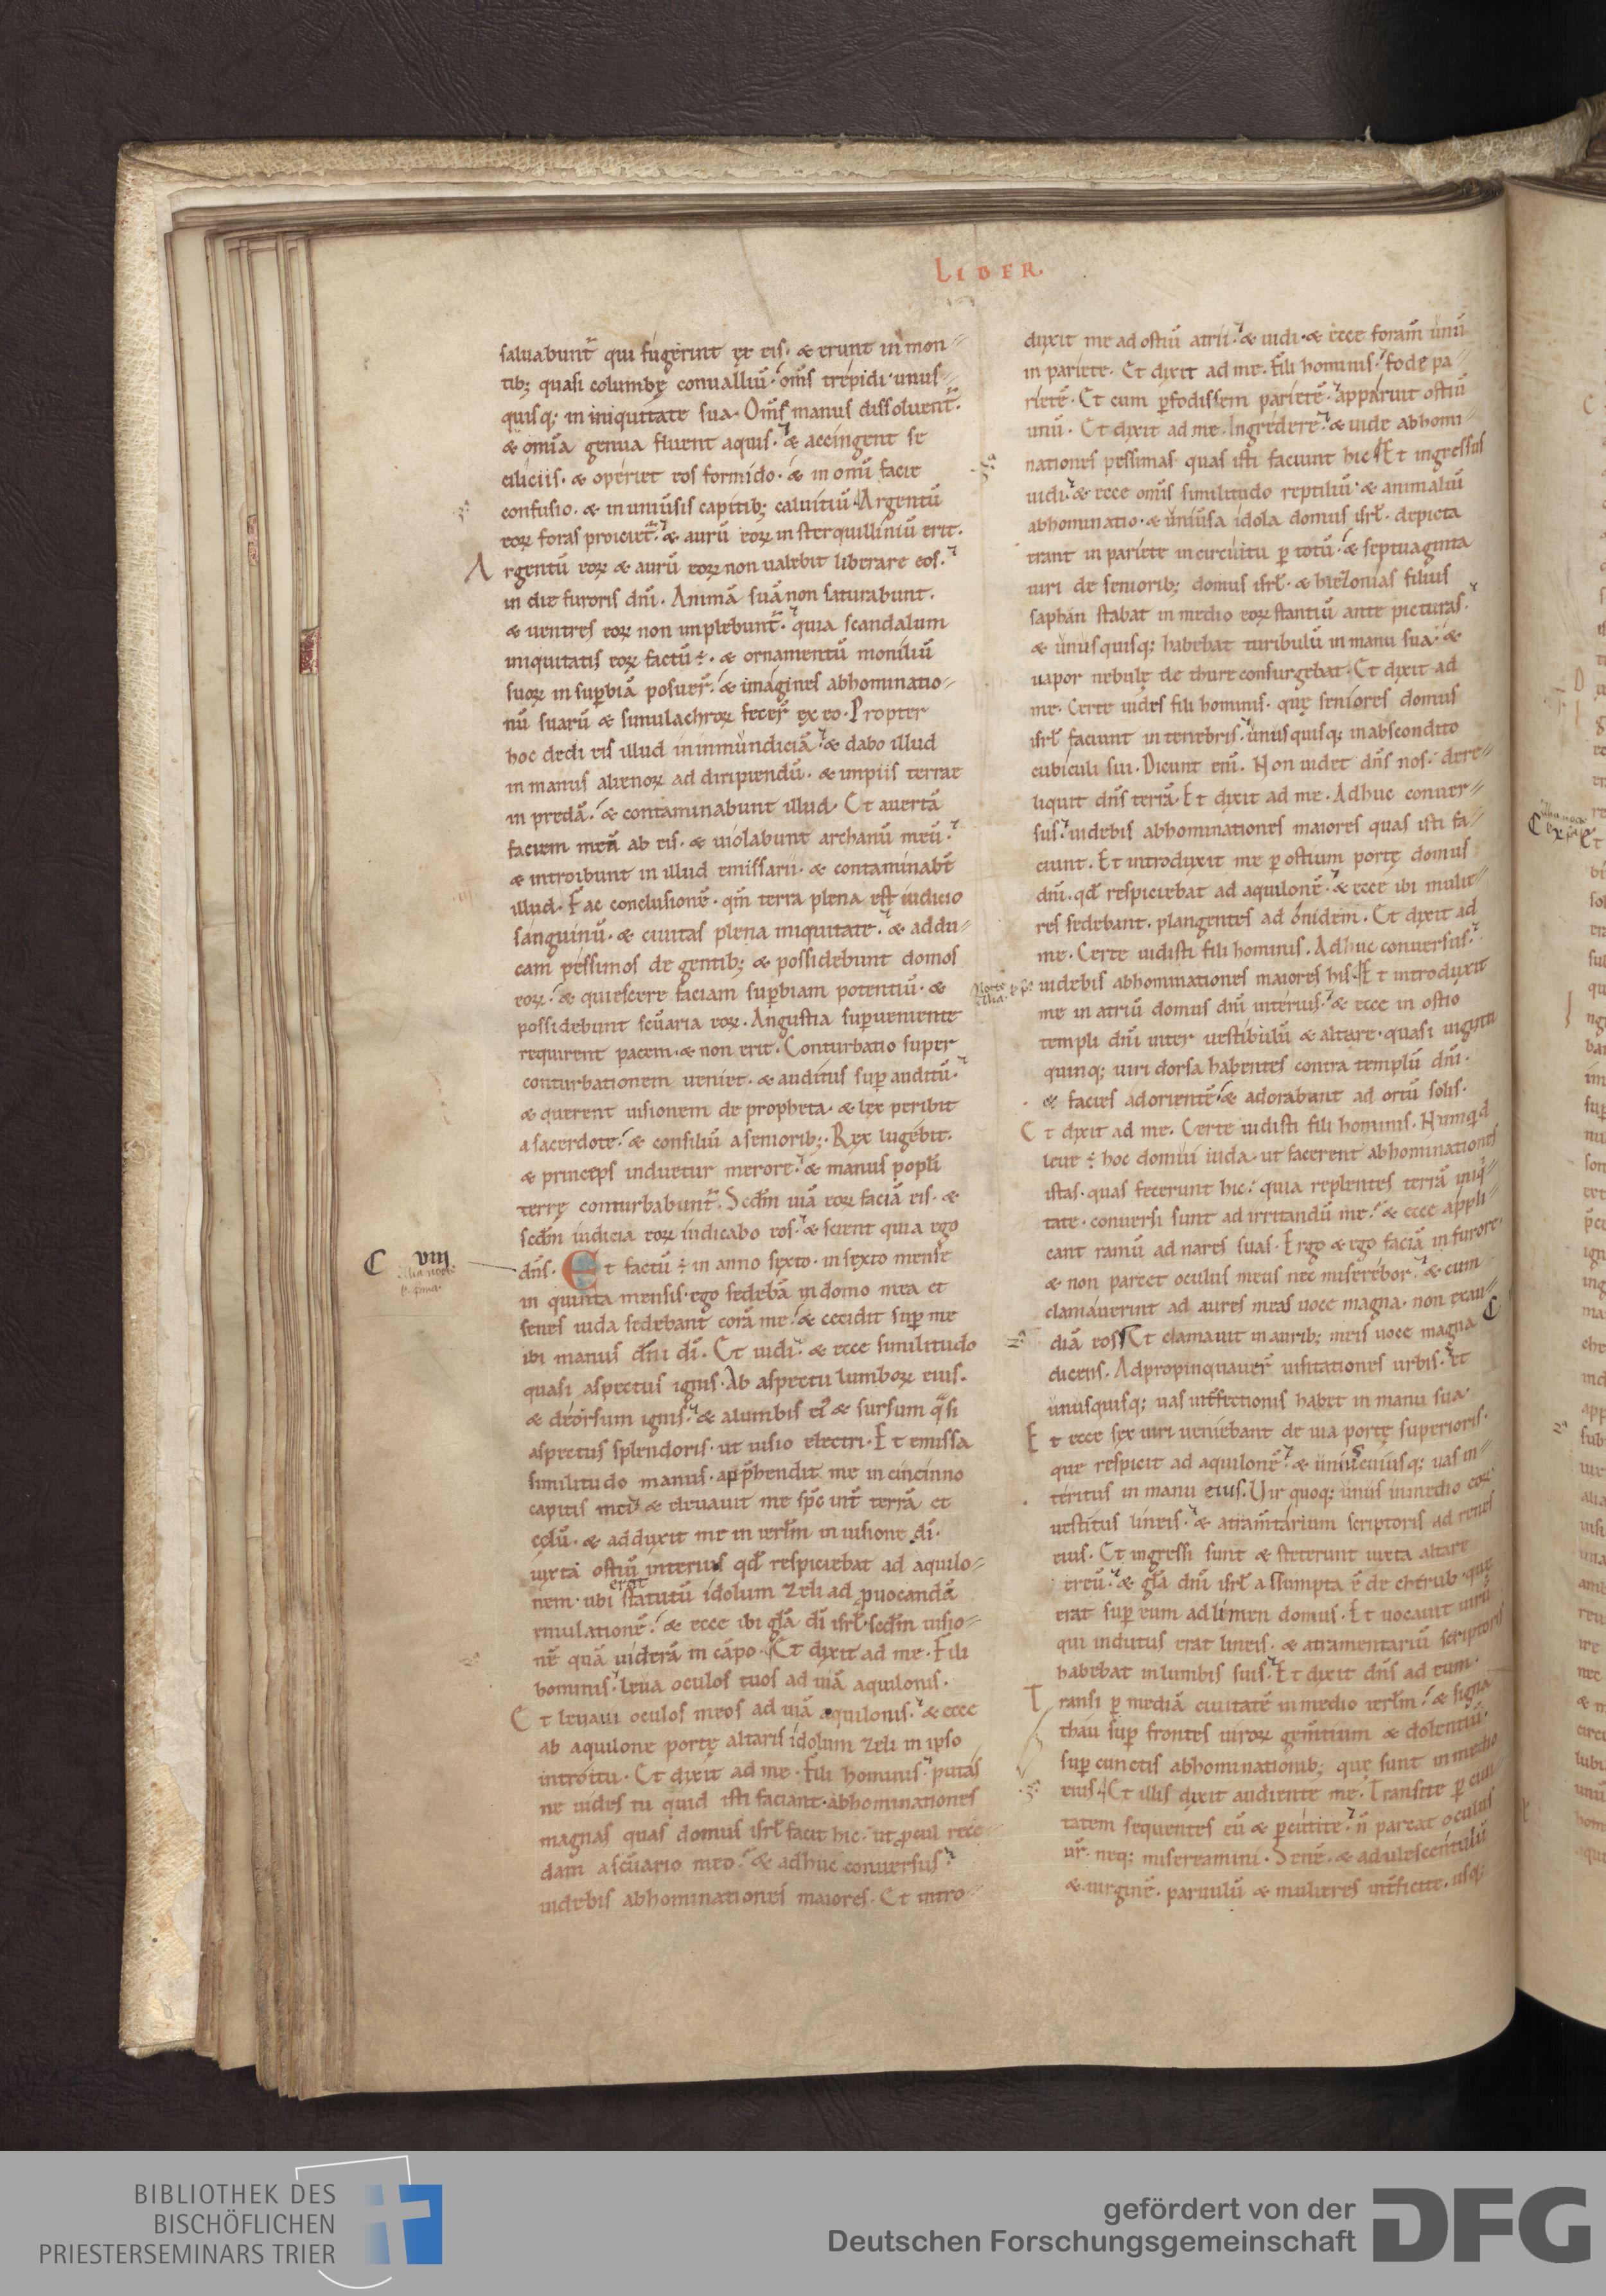 LIBER.
saluabunt̄ qui fugerint ex eis. & erunt in mon-
tib; quasi columbę conualliū. om̄s trepidi. unus-
quisq; in iniquitate sua. Om̄s manus dissoluent̄.
& om̄ia genua fluent aquis. & accingent se
ciliciis. & operiet eos formido. & in om̄i facie
confusio. & in uniūsis capitib; caluitiū. Argentū
eoꝝ foras proiciet̄. & aurū eoꝝ in sterquiliniū erit.
Argentū eoꝝ & aurū eoꝝ non ualebit liberare eos.
in die furoris dn̄i. Animā suā non saturabunt.
& uentres eoꝝ non implebunt̄. quia scandalum
iniquitatis eoꝝ factū ÷. & ornamentū moniliū
suoꝝ in sup̄biā posuer̄. & imagines abhominatio-
nū suarū & simulachroꝝ fecer̄ ex eo. Propter
hoc dedi eis illud in inmundiciā. & dabo illud
in manus alienoꝝ ad diripiendū. & impiis terrae
in predā. & contaminabunt illud. Et auertā
faciem meā ab eis. & uiolabunt archanū meū.
& introibunt in illud emissarii. & contaminabt̄
illud. Fac conclusionē. qm̄ terra plena est iudicio
sanguinū. & ciuitas plena iniquitate. & addu-
cam pessimos de gentib; & possidebunt domos
eoꝝ. & quiescere faciam sup̄biam potentiū. &
possidebunt sc̄uaria eoꝝ. Angustia superueniente
requirent pacem. & non erit. Conturbatio super
conturbationem ueniet. & auditus sup̄ auditū.
& querent uisionem de propheta. & lex peribit
a sacerdote. & consiliū a seniorib;. Rex lugebit.
& princeps induetur merore. & manus popli
terrę conturbabunt̄. Scdm̄ uiā eoꝝ faciā eis. &
scdm̄ iudicia eoꝝ iudicabo eos. & scient quia ego
C VIII
dn̄s. Et factū ÷ in anno sexto. in sexto mense
in quinta mensis. ego sedebā in domo mea et
senes iuda sedebant corā me. & cecidit sup̄ me
ibi manus dn̄i di. Et uidi. & ecce similitudo
quasi aspectus ignis. Ab aspectu lumboꝝ eius.
& deorsum ignis. & a lumbis ei' & sursum qͣsi
aspectus splendoris. ut uisio electri. Et emissa
similitudo manus. app̄hendit me in cincinno
capitis mei. & eleuauit me sp̄c int̄ terrā et
cęlū. & adduxit me in ierlm̄ in uisione di.
iuxta ostiū interius qd̄ respiciebat ad aquilo-
nem. ubi erat statutū idolum zeli ad ꝓuocandā
emulationē. & ecce ibi gl̄a di isrl̄. scdm̄ uisio-
nē quā uiderā in cāpo. Et dixit ad me. Fili
hominis. leua oculos tuos ad uiā aquilonis.
Et leuaui oculos meos ad uiā aquilonis. & ecce
ab aquilone portę altaris idolum zeli in ipso
introitu. Et dixit ad me. Fili hominis. putas
ne uides tu quid isti faciant. abhominationes
magnas quas domus isrl̄ facit hic. ut ꝓcul rece-
dam a sc̄uario meo. & adhuc conuersus.
uidebis abhominationes maiores. Et intro-
duxit me ad ostiū atrii. & uidi. & ecce foram̄ unū
in pariete. Et dixit ad me. Fili hominis. fode pa-
rietē. Et cum p̄fodissem parietē. apparuit ostiū
unū. Et dixit ad me. Ingredere. & uide abhomi-
nationes pessimas quas isti faciunt hic. Et ingressus
uidi. & ecce omīs similitudo reptiliū. & animaliū
abhominatio. & uniūsa idola domus isrl̄. depicta
erant in pariete in circuitu p̄ totū. & septuaginta
uiri de seniorib; domus isrl̄. & hiezonias filius
saphan stabat in medio eoꝝ stantiū ante picturas.
& unusquisq; habebat turibulū in manu sua. &
uapor nebulę de thure consurgebat. Et dixit ad
me. Certe uides fili hominis. quę seniores domus
isrl̄ faciunt in tenebris. unusquisq; in abscondito
cubiculi sui. Dicunt eni. Non uidet dn̄s nos. dere-
liquit dn̄s terrā. Et dixit ad me. Adhuc conuer-
sus. uidebis abhominationes maiores quas isti fa-
ciunt. Et introduxit me p̄ ostium portę domus
dn̄i. qd̄ respiciebat ad aquilonē. & ecce ibi mulie-
res sedebant. plangentes adonidem. Et dixit ad
me. Certe uidisti fili hominis. Adhuc conuersus.
uidebis abhominationes maiores his. Et introduxit
me in atriū domus dn̄i interius. & ecce in ostio
templi dn̄i inter uestibulū & altare. quasi uiginti
quinq; uiri dorsa habentes contra templū dn̄i.
& facies ad orientē. & adorabant ad ortū solis.
Et dixit ad me. Certe uidisti fili hominis. Numqd
leue ÷ hoc domui iuda. ut facerent abhominationes
istas. quas fecerunt hic. quia replentes terrā iniq-
tate. conuersi sunt ad irritandū me. & ecce appli-
cant ramū ad nares suas. Ergo & ego faciā in furore.
& non parcet oculus meus nec miserebor. & cum
clamauerint ad aures meas uoce magna. non exau-
C
diā eos. Et clamauit in aurib; meis uoce magna
dicens. Adpropinquauer̄ uisitationes urbis. et
unusquisq; uas int̄fectionis habet in manu sua.
Et ecce sex uiri ueniebant de uia portę superioris.
que respicit ad aquilonē. & uniuscuiusq; uas in-
teritus in manu eius. Uir quoq; unus in medio eoꝝ
uestitus lineis. & atram̄tarium scriptoris ad renes
eius. Et ingressi sunt & steterunt iuxta altare
ereū. & gl̄a dn̄i isrl̄ assumpta ē de cherub. que
erat sup̄ eum ad limen domus. Et uocauit uirū
qui indutus erat lineis. & atramentariū scriptoris
habebat in lumbis suis. Et dixit dn̄s ad eum.
Transi p̄ mediā ciuitatē in medio ierlm̄. & signa
thau sup̄ frontes uiroꝝ gem̄tium & dolentiū.
sup̄ cunctis abhominationib; quę sunt in medio
eius. Et illis dixit audiente me. Transite p̄ ciui-
tatem sequentes eū & p̄cutite. n̄ parcat oculus
ur̄. neq; misereamini. Senē. & adulescentulū
& uirginē. paruulū & mulieres int̄ficite. usq;
BIBLIOTHEK DES
BISCHÖFLICHEN
PRIESTERSEMINARS TRIER
gefördert von der
Deutschen Forschungsgemeinschaft
DFG